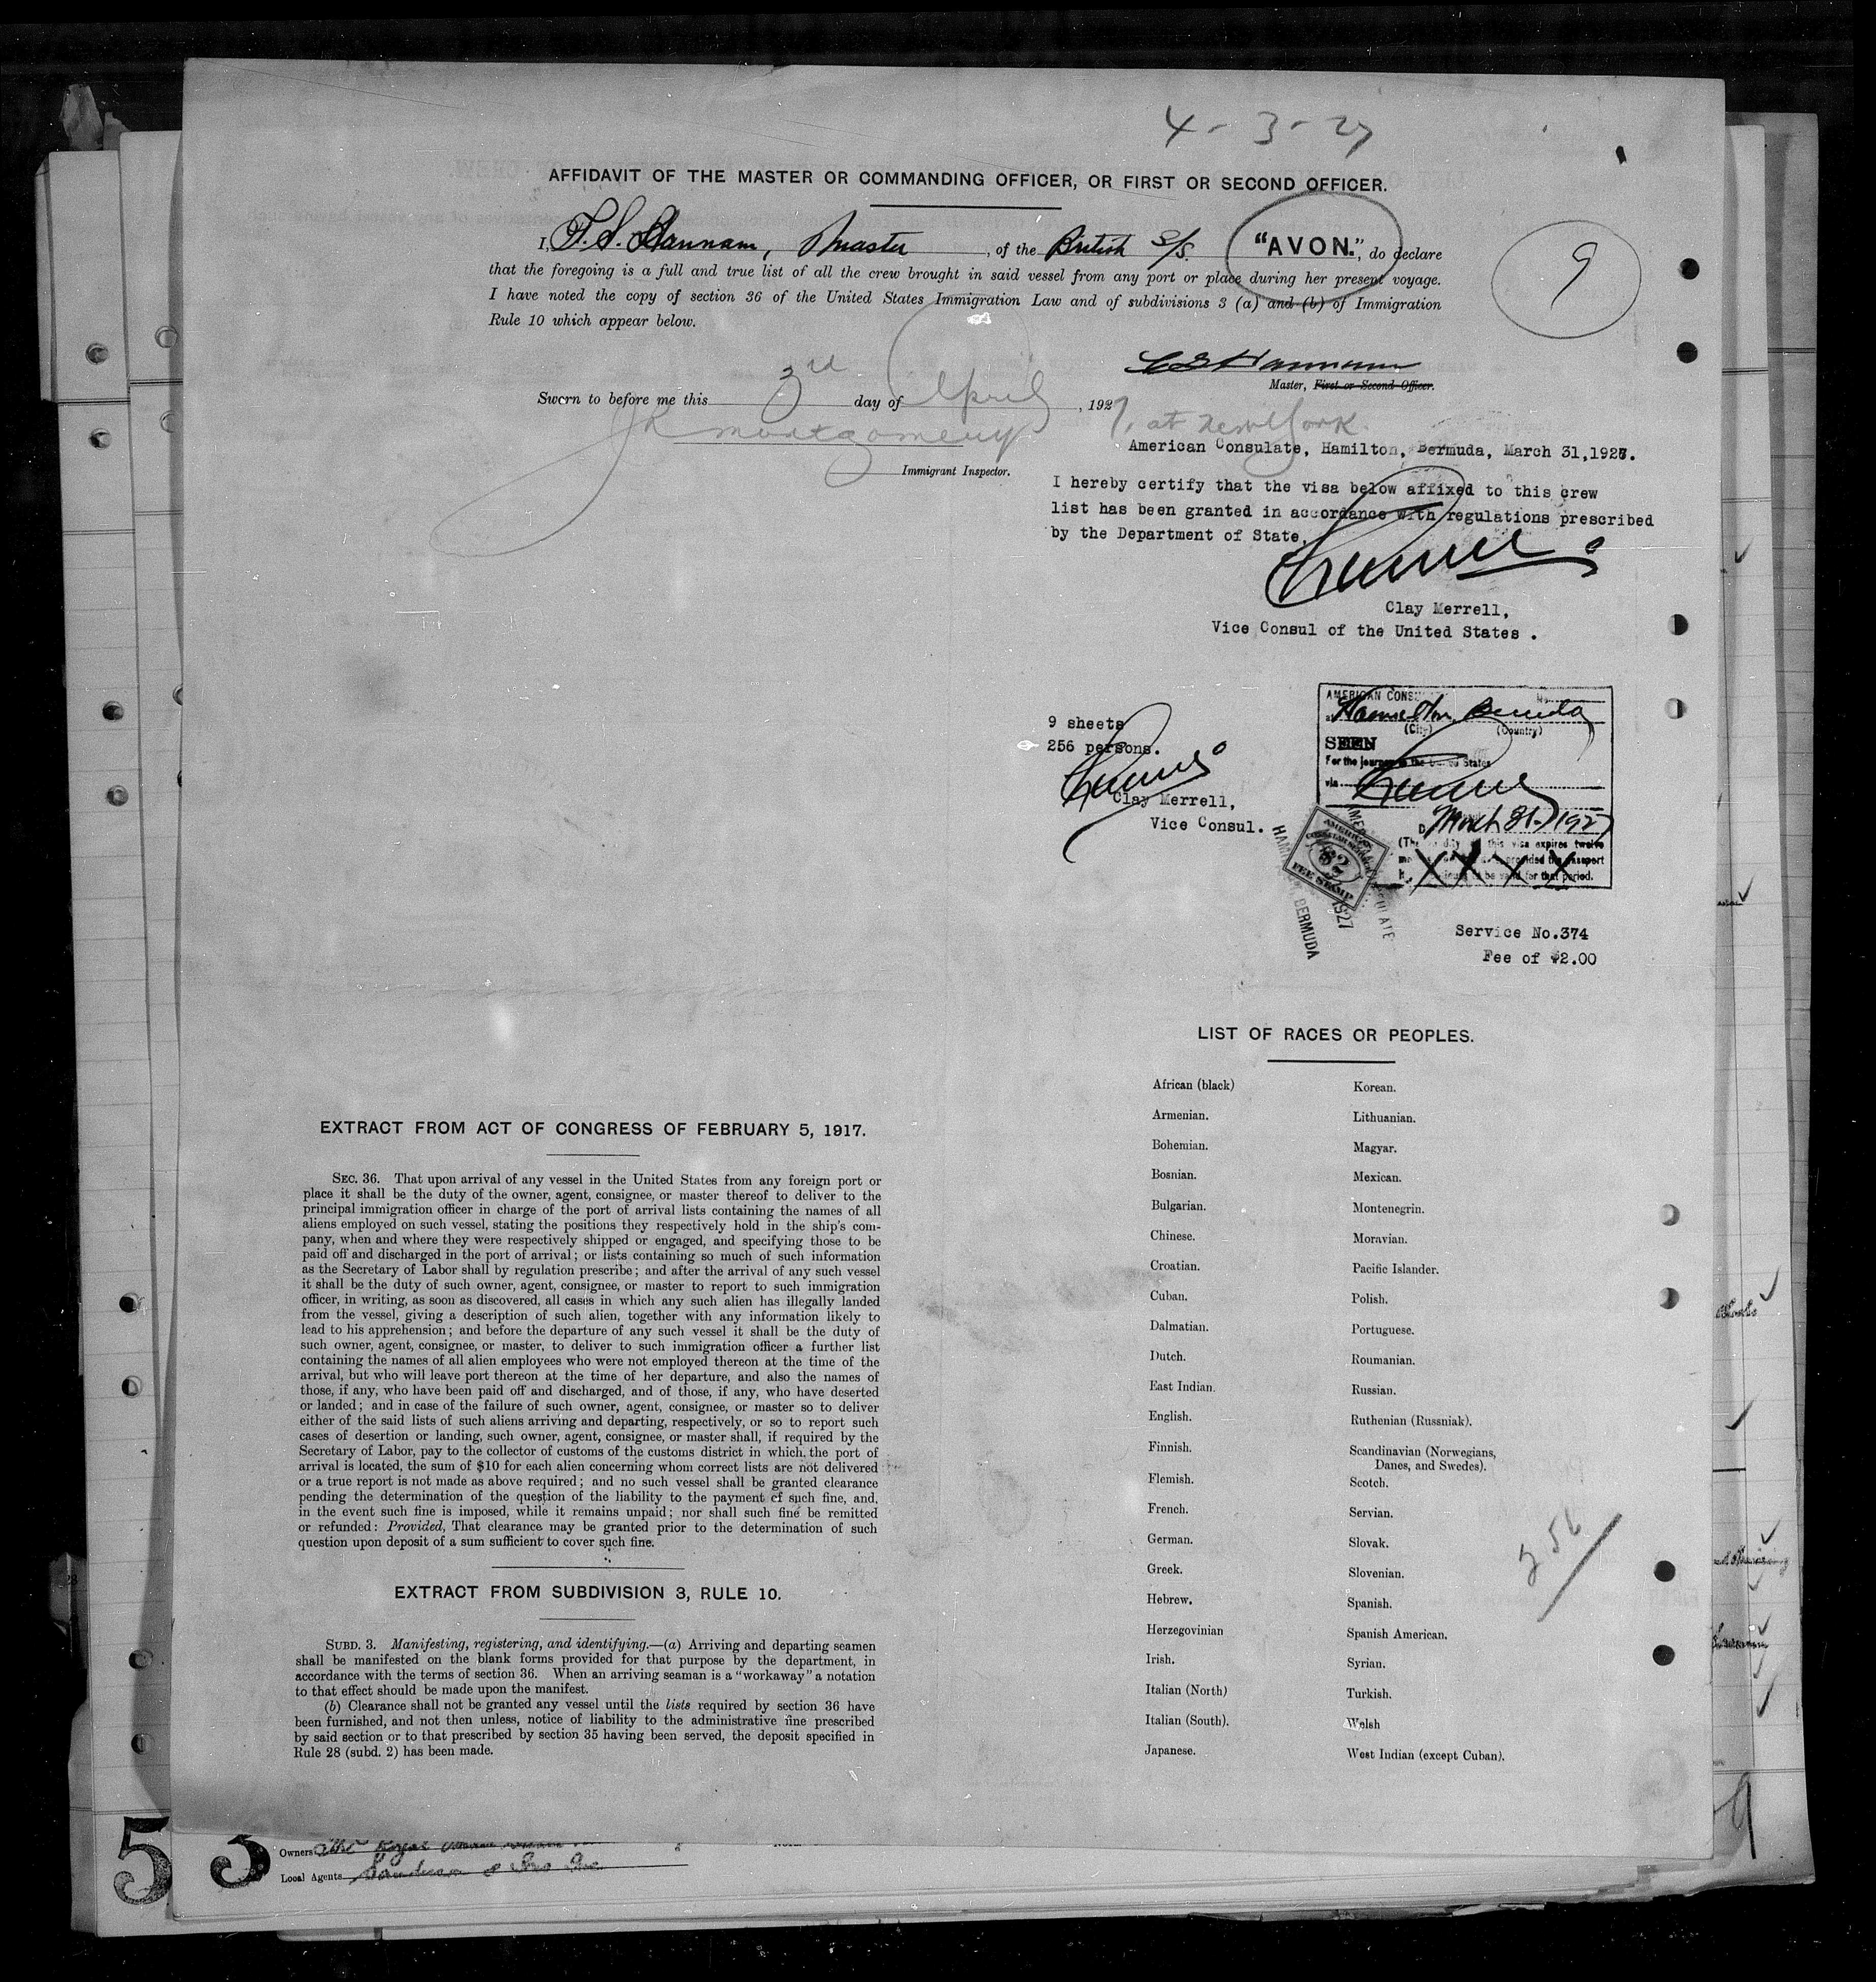 4 - 3 - 27
AFFIDAVIT OF THE MASTER OR COMMANDING OFFICER, OR FIRST OR SECOND OFFICER.
I, F. S. Hannam, Master, of the British S/S. "AVON.", do declare
that the foregoing is a full and true list of all the crew brought in said vessel from any port or place during her present voyage.
I have noted the copy of section 36 of the United States Immigration Law and of subdivisions 3 (a) and (b) of Immigration
Rule 10 which appear below.
9
Master, First or Second Officer.
Sworn to before me this 3rd day of April, 1927, at New York
Montgomery
Immigrant Inspector.
American Consulate, Hamilton, Bermuda, March 31,1927.
I hereby certify that the visa below affixed to this crew
list has been granted in accordance with regulations prescribed
by the Department of State.
Clay Merrell,
Vice Consul of the United States .
9 sheets
256 persons.
Clay Merrell,
Vice Consul.
AMERICAN CONS
at Hamilton, Bermuda
(City) (Country)
SEEN
For the journey to the United States
via
March 31-1927
(The validity of this visa expires twelve
provided the passport
to be valid for that period.
XXXX
AMERICAN
CONSULAR SERVICE
$2
FEE STAMP
1927
BERMUDA
Service No.374
Fee of $2.00
LIST OF RACES OR PEOPLES.
African (black)
Armenian.
Bohemian.
Bosnian.
Bulgarian.
Chinese.
Croatian.
Cuban.
Dalmatian.
Dutch.
East Indian.
English.
Finnish.
Flemish.
French.
German.
Greek.
Hebrew.
Herzegovinian
Irish.
Italian (North)
Italian (South).
Japanese.
Korean.
Lithuanian.
Magyar.
Mexican.
Montenegrin.
Moravian.
Pacific Islander.
Polish.
Portuguese.
Roumanian.
Russian.
Ruthenian (Russniak).
Scandinavian (Norwegians,
Danes, and Swedes).
Scotch.
Servian.
Slovak.
Slovenian.
Spanish.
Spanish American.
Syrian.
Turkish.
Welsh
West Indian (except Cuban).
256
EXTRACT FROM ACT OF CONGRESS OF FEBRUARY 5, 1917.
SEC. 36. That upon arrival of any vessel in the United States from any foreign port or
place it shall be the duty of the owner, agent, consignee, or master thereof to deliver to the
principal immigration officer in charge of the port of arrival lists containing the names of all
aliens employed on such vessel, stating the positions they respectively hold in the ship's com-
pany, when and where they were respectively shipped or engaged, and specifying those to be
paid off and discharged in the port of arrival; or lists containing so much of such information
as the Secretary of Labor shall by regulation prescribe; and after the arrival of any such vessel
it shall be the duty of such owner, agent, consignee, or master to report to such immigration
officer, in writing, as soon as discovered, all cases in which any such alien has illegally landed
from the vessel, giving a description of such alien, together with any information likely to
lead to his apprehension; and before the departure of any such vessel it shall be the duty of
such owner, agent, consignee, or master, to deliver to such immigration officer a further list
containing the names of all alien employees who were not employed thereon at the time of the
arrival, but who will leave port thereon at the time of her departure, and also the names of
those, if any, who have been paid off and discharged, and of those, if any, who have deserted
or landed; and in case of the failure of such owner, agent, consignee, or master so to deliver
either of the said lists of such aliens arriving and departing, respectively, or so to report such
cases of desertion or landing, such owner, agent, consignee, or master shall, if required by the
Secretary of Labor, pay to the collector of customs of the customs district in which the port of
arrival is located, the sum of $10 for each alien concerning whom correct lists are not delivered
or a true report is not made as above required; and no such vessel shall be granted clearance
pending the determination of the question of the liability to the payment of such fine, and,
in the event such fine is imposed, while it remains unpaid; nor shall such fine be remitted
or refunded: Provided, That clearance may be granted prior to the determination of such
question upon deposit of a sum sufficient to cover such fine.
EXTRACT FROM SUBDIVISION 3, RULE 10.
SUBD. 3. Manifesting, registering, and identifying.—(a) Arriving and departing seamen
shall be manifested on the blank forms provided for that purpose by the department, in
accordance with the terms of section 36. When an arriving seaman is a "workaway" a notation
to that effect should be made upon the manifest.
(b) Clearance shall not be granted any vessel until the lists required by section 36 have
been furnished, and not then unless, notice of liability to the administrative fine prescribed
by said section or to that prescribed by section 35 having been served, the deposit specified in
Rule 28 (subd. 2) has been made.
5 3
Owners The Royal
Local Agents Sanderson & Son Inc